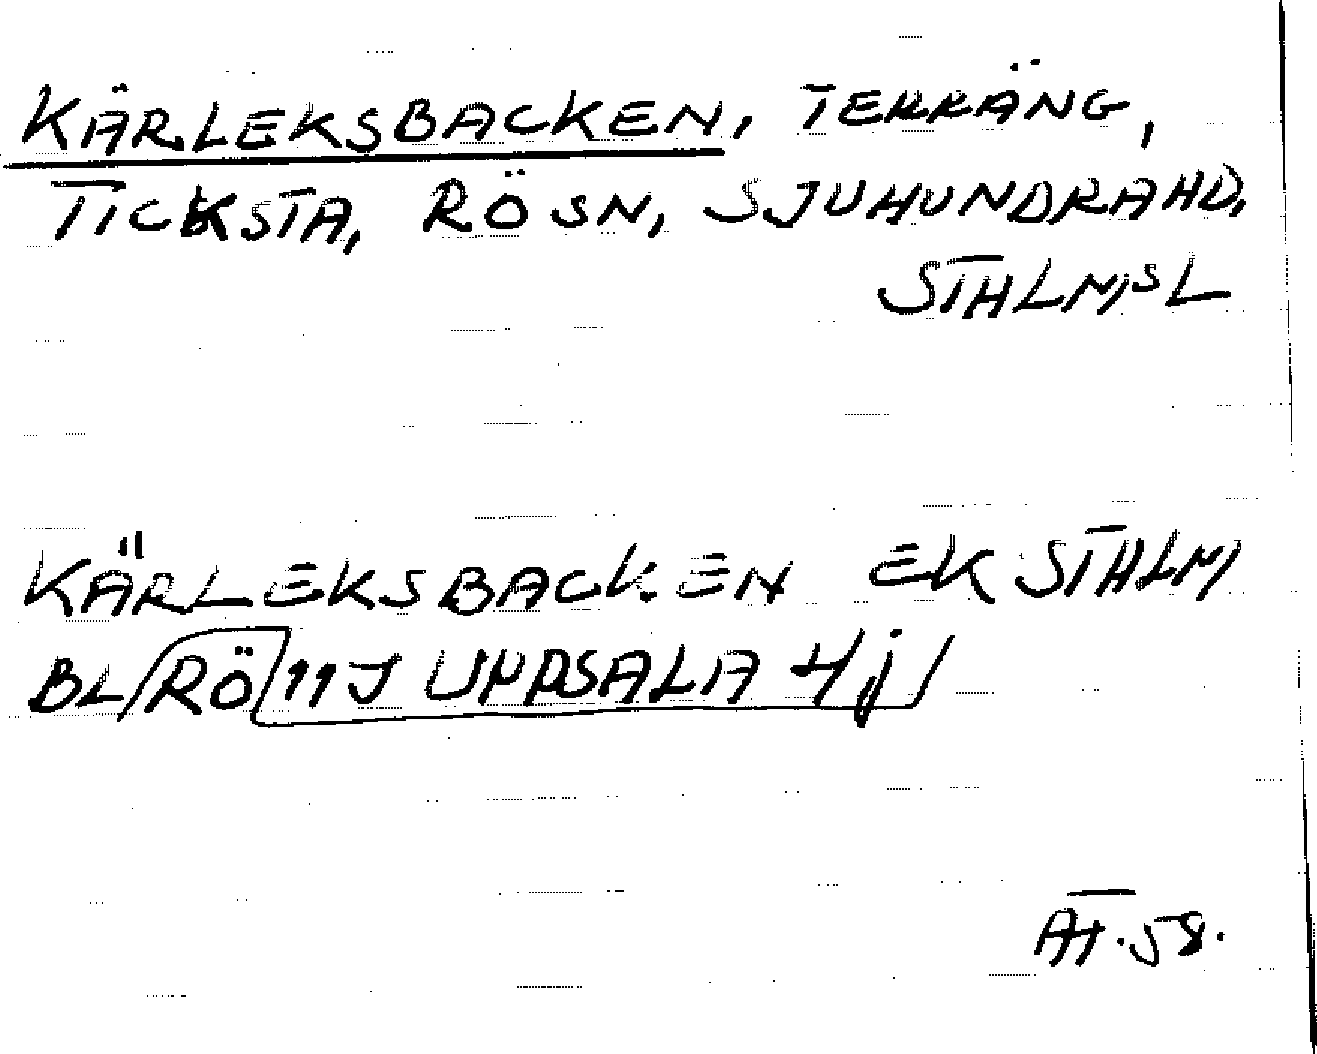 KÄRLEKSBACKEN, TERRÄNG,
TICKSTA, RÖ SN, SJUHUNDRA HD,
STHLMS L
KÄRLEKSBACKEN EK STHLM
BL RÖ 11J UPPSALA 4j
AT.58.